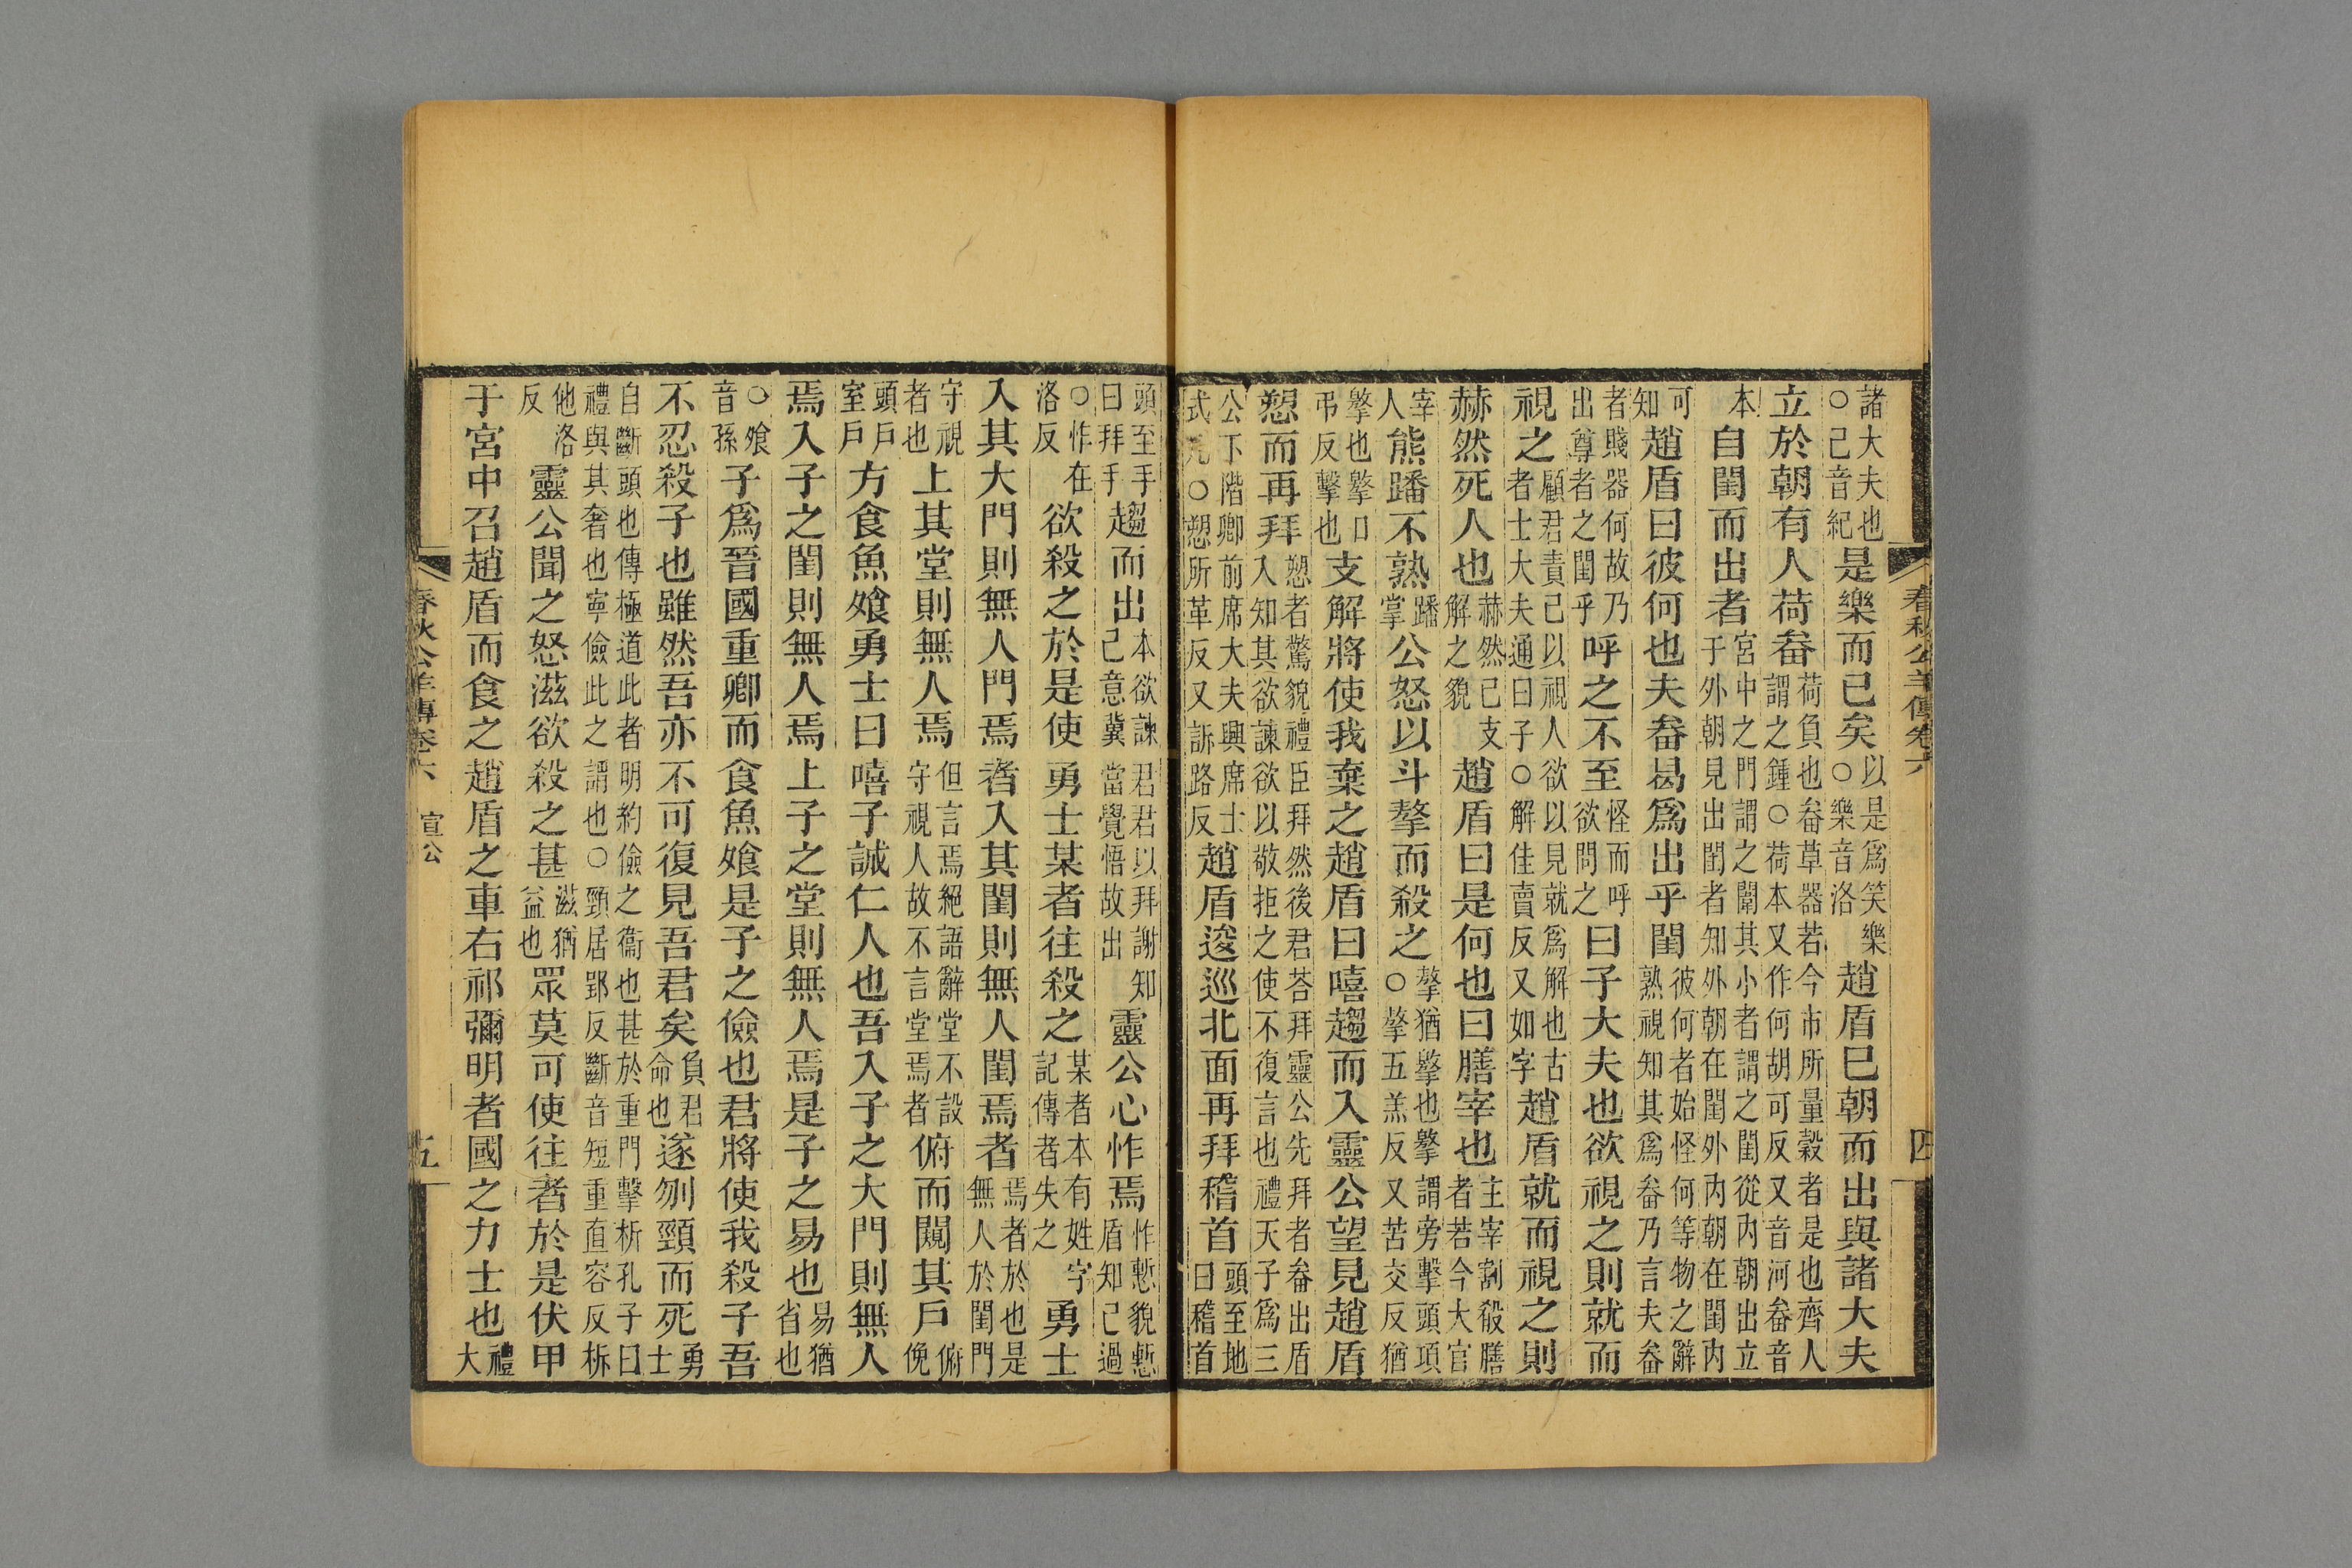 春秋公羊傳卷六 四
諸大夫也○己音紀是樂而已矣以是爲笑樂○樂音洛趙盾已朝而出與諸大夫
立於朝有人荷畚荷負也畚草器若今市所量穀者是也齊人謂之鍾○荷本又作何胡可反又音河畚音
本自閨而出者宮中之門謂之闈其小者謂之閨從內朝出立于外朝見出閨者知外朝在閨外內朝在閨內
可知趙盾曰彼何也夫畚曷爲出乎閨彼何者始怪何等物之辭熟視知其爲畚乃言夫畚
者賤器何故乃出尊者之閨乎呼之不至怪而呼欲問之曰子大夫也欲視之則就而
視之顧君責己以視人欲以見就爲解也古者士大夫通曰子○解佳賣反又如字趙盾就而視之則
赫然死人也赫然已支解之貌趙盾曰是何也曰膳宰也主宰割殽膳者若今大官
宰人熊蹯不熟蹯掌公怒以斗摮而殺之摮猶㩇也㩇謂旁擊頭項○摮五羔反又苦交反猶
㩇也㩇口弔反擊也支解將使我棄之趙盾曰嘻趨而入靈公望見趙盾
愬而再拜愬者驚貌禮臣拜然後君荅拜靈公先拜者畚出盾入知其欲諫欲以敬拒之使不復言也禮天子爲三
公下階卿前席大夫興席士式几○愬所革反又訴路反趙盾逡巡北面再拜稽首頭至地曰稽首
頭至手曰拜手趨而出本欲諫君君以拜謝知己意冀當覺悟故出靈公心怍焉怍慙貌慙盾知己過
○怍在洛反欲殺之於是使勇士某者往殺之某者本有姓字記傳者失之勇士
入其大門則無人門焉者入其閨則無人閨焉者焉者於也是無人於閨門
守視者也上其堂則無人焉但言焉絕語辭堂不設守視人故不言堂焉者俯而闚其戶俯俛
頭戶室戶方食魚飧勇士曰嘻子誠仁人也吾入子之大門則無人
焉入子之閨則無人焉上子之堂則無人焉是子之易也易猶省也
○飧音孫子爲晉國重卿而食魚飧是子之儉也君將使我殺子吾
不忍殺子也雖然吾亦不可復見吾君矣負君命也遂刎頸而死勇士
自斷頭也傳極道此者明約儉之衞也甚於重門擊柝孔子曰禮與其奢也寧儉此之謂也○頸居郢反斷音短重直容反柝
他洛反靈公聞之怒滋欲殺之甚滋猶益也眾莫可使往者於是伏甲
于宮中召趙盾而食之趙盾之車右祁彌明者國之力士也禮大
春秋公羊傳卷六 宣公 五